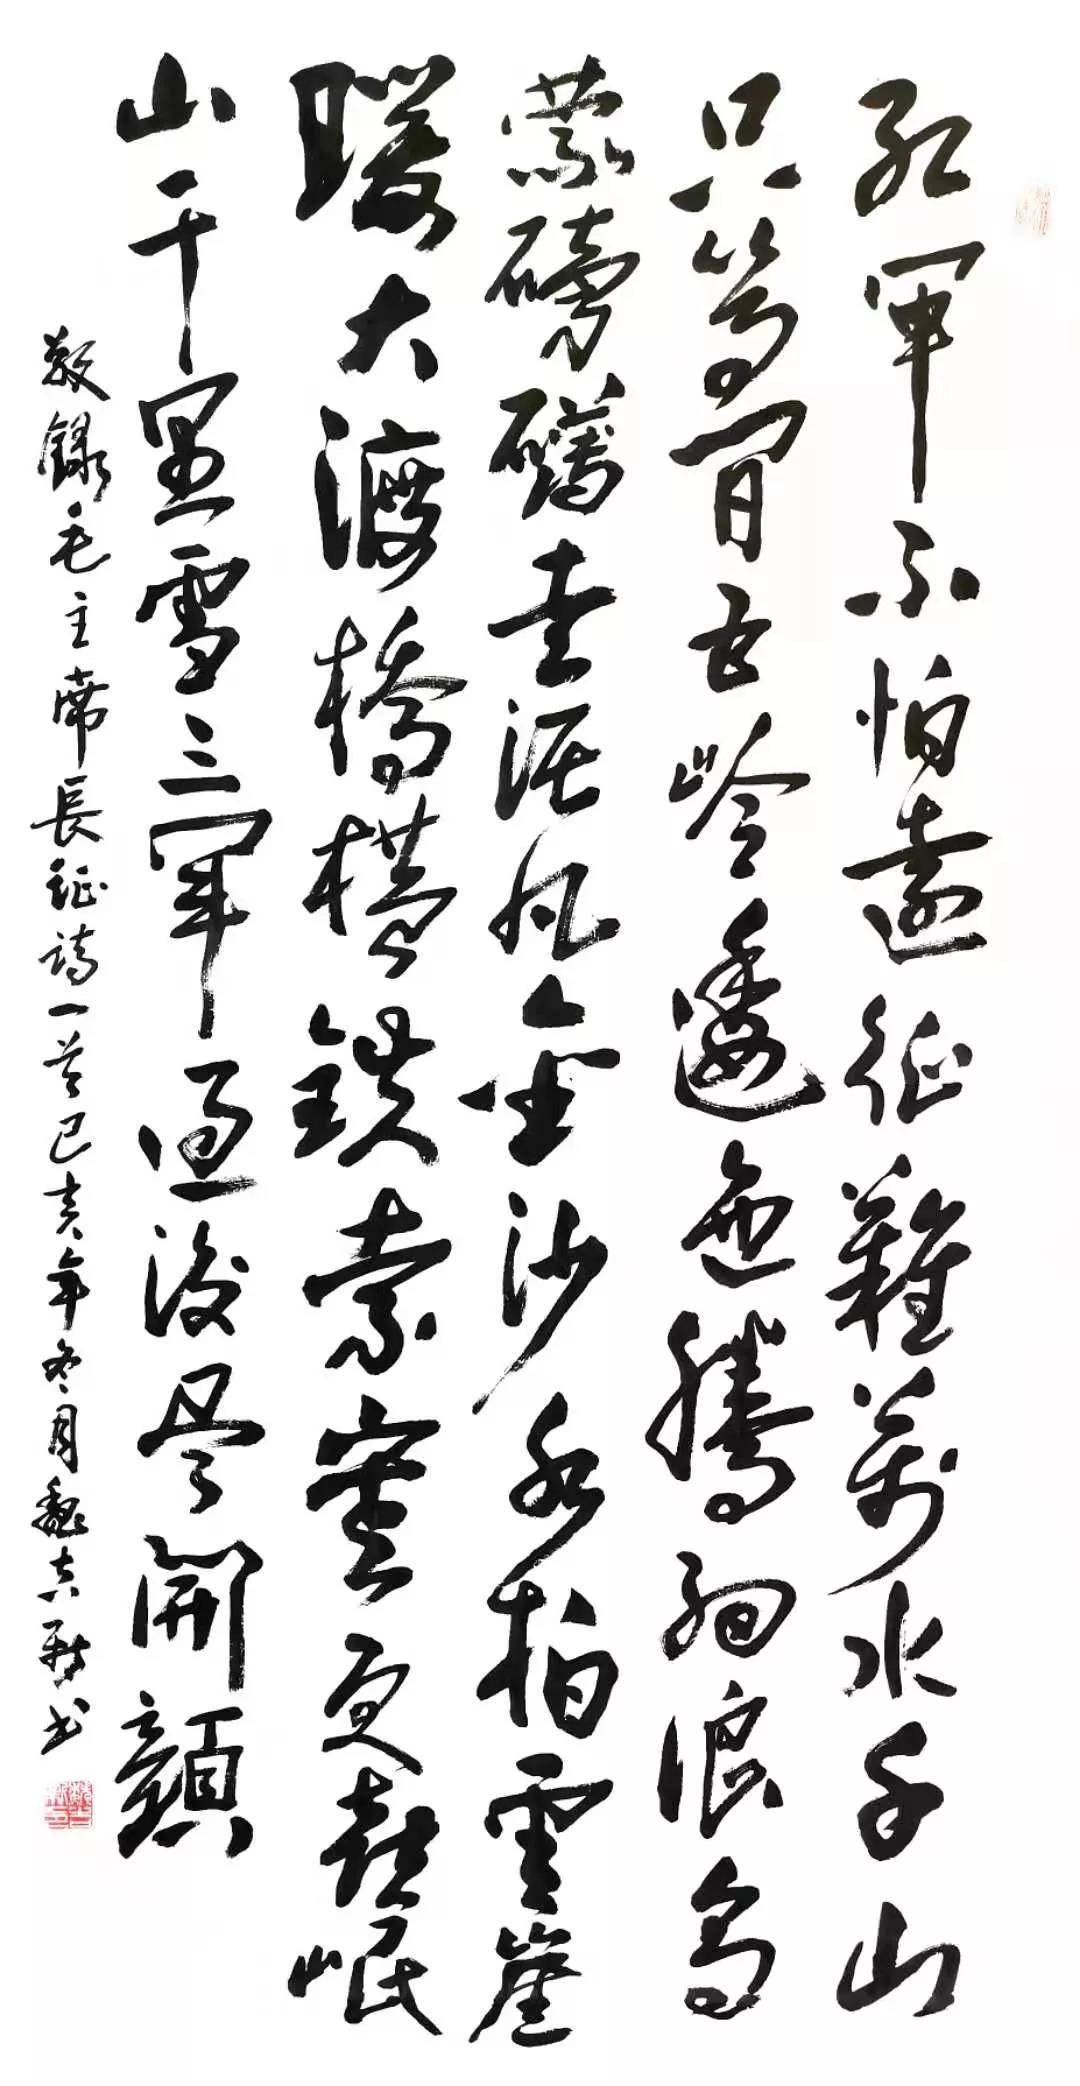 红軍不怕遠征難萬水千山
只等閒五嶺逶迤騰細浪烏
蒙磅礴走泥丸金沙水拍雲崖
暖大渡橋橫鉄索寒更喜岷
山千里雪三軍過後尽開顏
敬錄毛主席長征詩一首己亥年冬月魏吉新书